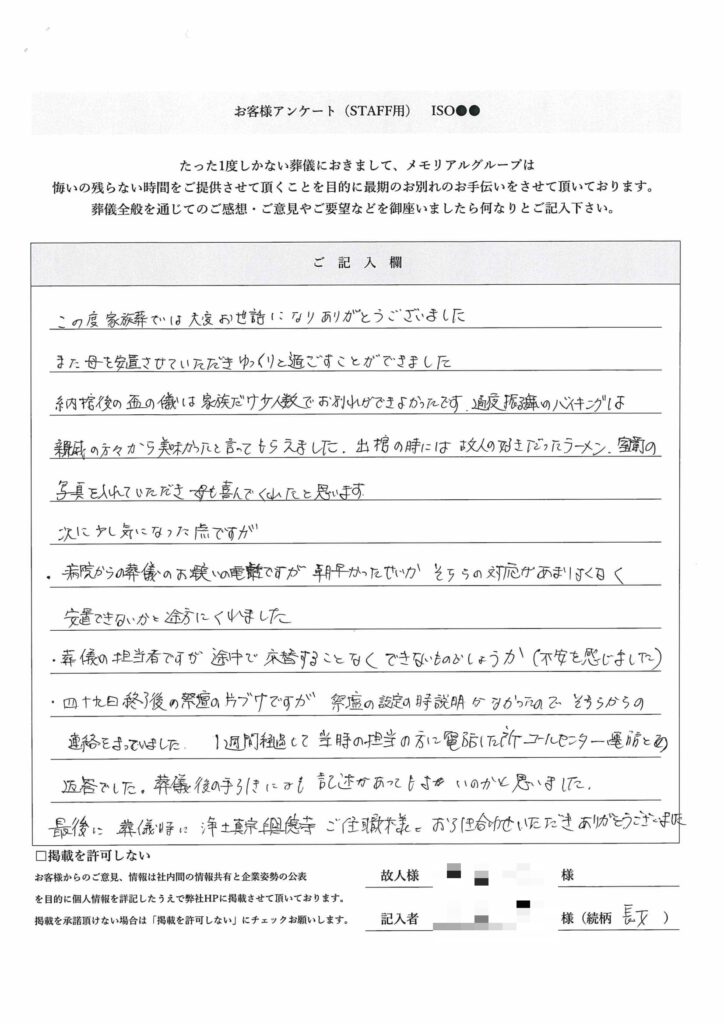 お客様アンケート（STAFF用）　ISO●●
たった1度しかない葬儀におきまして、メモリアルグループは
悔いの残らない時間をご提供させて頂くことを目的に最期のお別れのお手伝いをさせて頂いております。
葬儀全般を通じてのご感想・ご意見やご要望などを御座いましたら何なりとご記入下さい。
ご 記 入 欄
この度家族葬では大変お世話になりありがとうございました
また母を安置させていただきゆっくりと過ごすことができました
納棺後の盃の儀は家族だけ少人数でお別れができよかったです.通夜振る舞いのバイキングは
親戚の方々から美味かったと言ってもらえました.出棺の時には故人の好きだったラーメン.の
写真を入れていただき母も喜んでくれたと思います
次に少し気になった点ですが
・病院からの葬儀のお願いの電話ですが朝早かったせいかそちらの対応があまりよくなく
安置できないかと途方にくれました
・葬儀の担当者ですが途中で交替することなくできないものでしょうか(不安を感じました)
・四十九日終了後の祭壇の片ブケですが祭壇の設定の時説明がなかったのでそちらからの
連絡をまっていました.1週間経過して当時の担当の方に電話した所コールセンターへ電話との
返答でした。葬儀後の手引きにも記述があってもよいのかと思いました.
最後に葬儀時に浄土真宗 ご住職様とお引き合わせいただきありがとうございました
□掲載を許可しない
お客様からのご意見、情報は社内間の情報共有と企業姿勢の公表
を目的に個人情報を詳記したうえで弊社HPに掲載させて頂いております。
掲載を承諾頂けない場合は「掲載を許可しない」にチェックお願いします。
故人様　様
記入者　様（続柄 長女 ）